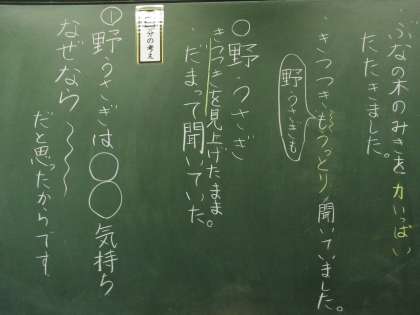 ・ぶなの木のみきを力いっぱい
たたきました。
・きつつきもうっとり聞いていました。
野うさぎも
○野うさぎ
きつつきを見上げたまま
・だまって聞いていた。
自分の考え
①野うさぎは○○気持ち
なぜなら〜〜〜
だと思ったからです